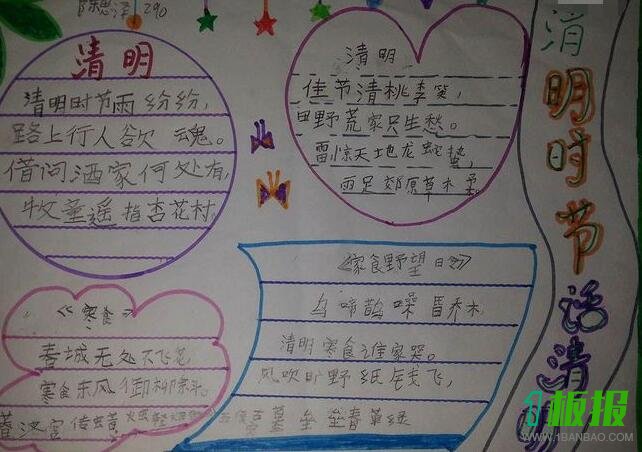 陈思泽 290
清明
清明时节雨纷纷,
路上行人欲 魂。
借问酒家何处有,
牧童遥指杏花村.
清明
佳节清桃李笑,
田野荒冢只生愁。
雷惊天地龙蛇蛰,
雨足郊原草木柔。
《寒食》
春城无处不飞花
寒食东风御柳斜.
暮汉宫传
《寒食野望
乌啼鹊噪昏乔木,
清明寒食谁家哭。
风吹旷野纸钱飞,
古墓垒垒春草绿
清明时节
话清
板报
WWW.1BANBAO.COM